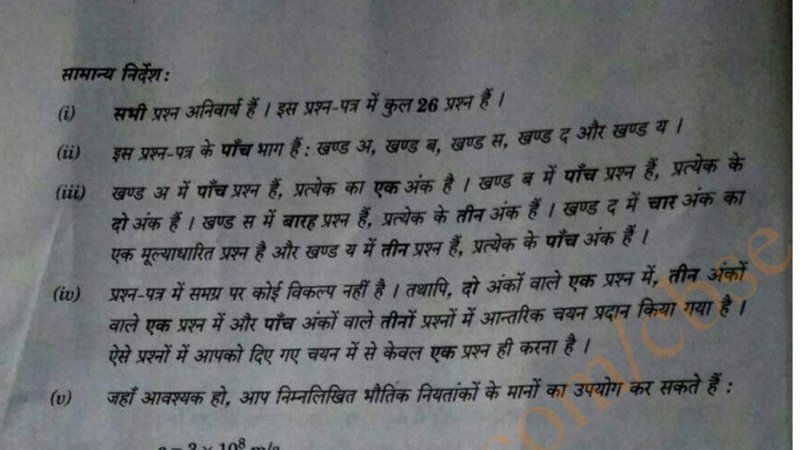 सामान्य निर्देश :
(i) सभी प्रश्न अनिवार्य हैं । इस प्रश्न-पत्र में कुल 26 प्रश्न हैं ।
(ii) इस प्रश्न-पत्र के पाँच भाग हैं : खण्ड अ, खण्ड ब, खण्ड स, खण्ड द और खण्ड य ।
(iii) खण्ड अ में पाँच प्रश्न हैं, प्रत्येक का एक अंक है । खण्ड ब में पाँच प्रश्न हैं, प्रत्येक के
दो अंक हैं । खण्ड स में बारह प्रश्न हैं, प्रत्येक के तीन अंक हैं । खण्ड द में चार अंक का
एक मूल्याधारित प्रश्न है और खण्ड य में तीन प्रश्न हैं, प्रत्येक के पाँच अंक हैं ।
(iv) प्रश्न-पत्र में समग्र पर कोई विकल्प नहीं है । तथापि, दो अंकों वाले एक प्रश्न में, तीन अंकों
वाले एक प्रश्न में और पाँच अंकों वाले तीनों प्रश्नों में आन्तरिक चयन प्रदान किया गया है ।
ऐसे प्रश्नों में आपको दिए गए चयन में से केवल एक प्रश्न ही करना है ।
(v) जहाँ आवश्यक हो, आप निम्नलिखित भौतिक नियतांकों के मानों का उपयोग कर सकते हैं :
c = 3 × 10⁸ m/s
com/cbse